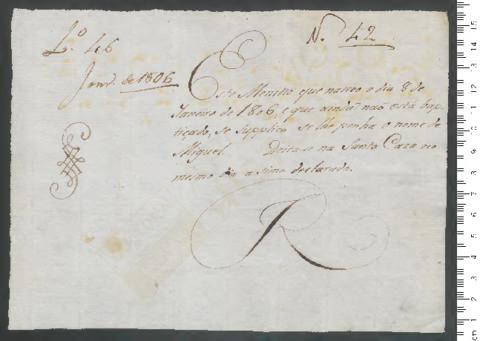 N.º 42
L.º 46
Janr.º de 1806
Este Menino que nasceo o dia 8 de
Janeiro de 1806, e que ainda não está bap-
tizado, se Supplica se lhe ponha o nome de
Miguel. Deita-se na Santa Caza no
mesmo dia a sima declarado.
R